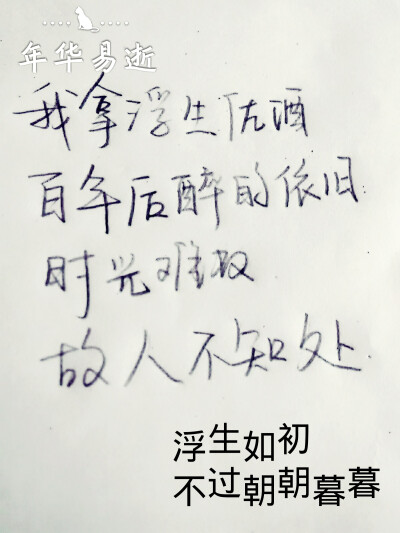 年华易逝
我拿浮生佐酒
百年后醉的依旧
时光难取
故人不知处
浮生如初
不过朝朝暮暮